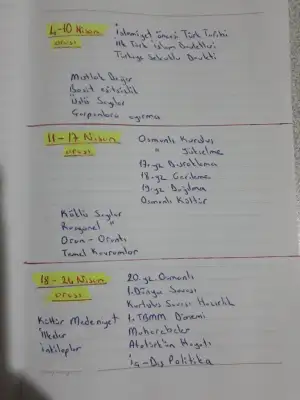 4-10 Nisan
arası
İslamiyet öncesi Türk Tarihi
İlk Türk İslam Devletleri
Türkiye Selçuklu Devleti
Mutlak Değer
Basit eşitsizlik
Üslü Sayılar
Çarpanlara ayırma
11-17 Nisan
arası
Osmanlı Kuruluş
" Yükselme
17.yz Duraklama
18.yz Gerileme
19.yz Dağılma
Osmanlı Kültür
Köklü Sayılar
Rasyonel "
Oran-Orantı
Temel Kavramlar
18-24 Nisan
arası
20.yz Osmanlı
1.Dünya Savaşı
Kurtuluş Savaşı Hazırlık
1.TBMM Dönemi
Muharebeler
Atatürk'ün Hayatı
İç-Dış Politika
Kültür Medeniyet
İlkeler
İnkılaplar